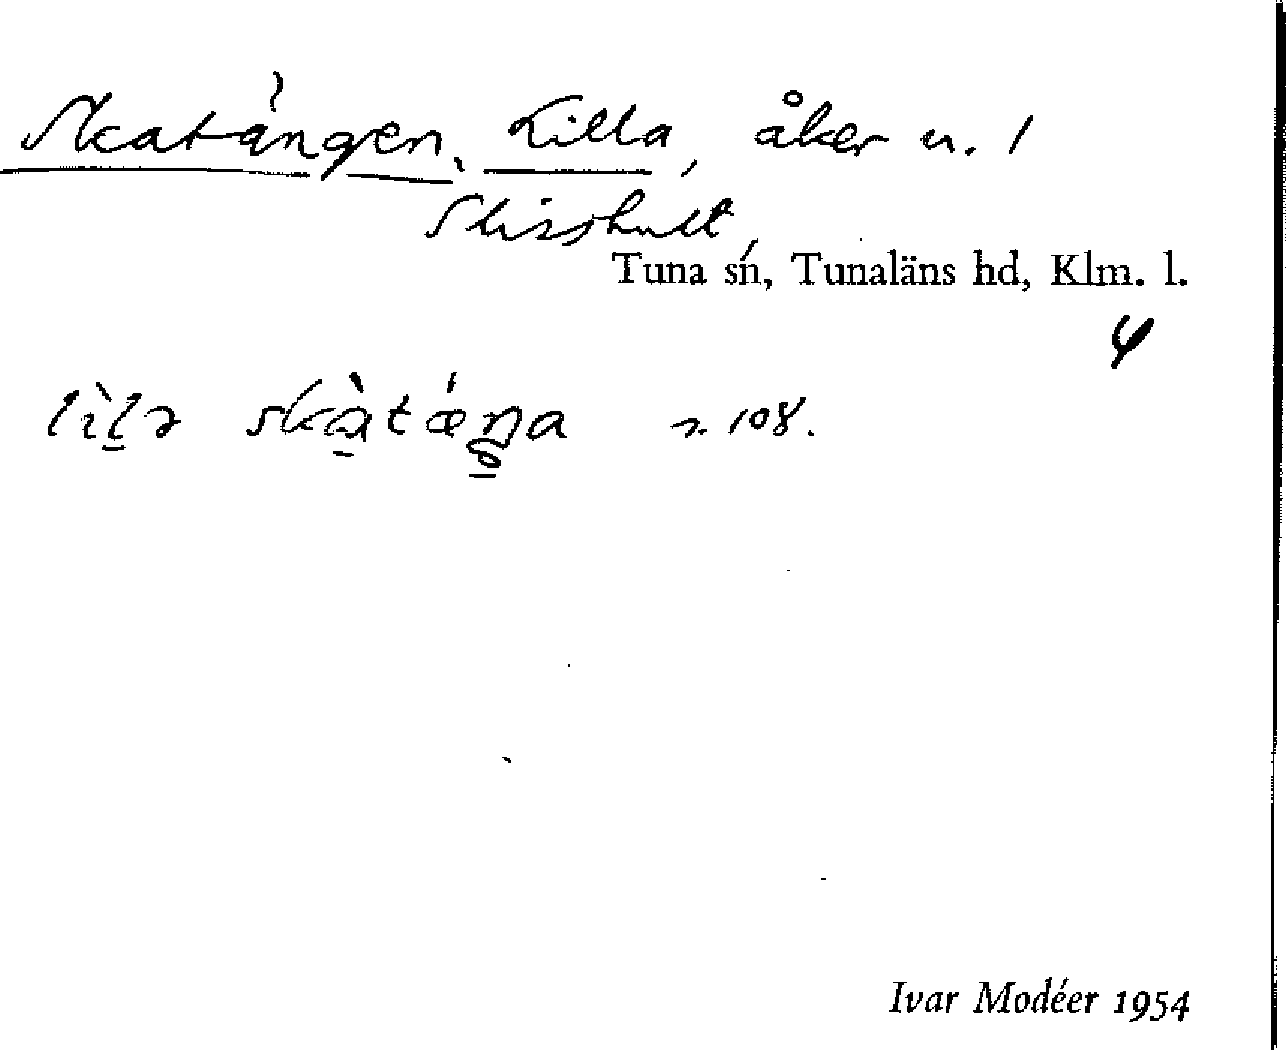 Skatängen, Lilla, åker u. 1
Slisshult,
Tuna sn, Tunaläns hd, Klm. l.
lìlə skàtǽŋa n. 108.
Ivar Modéer 1954